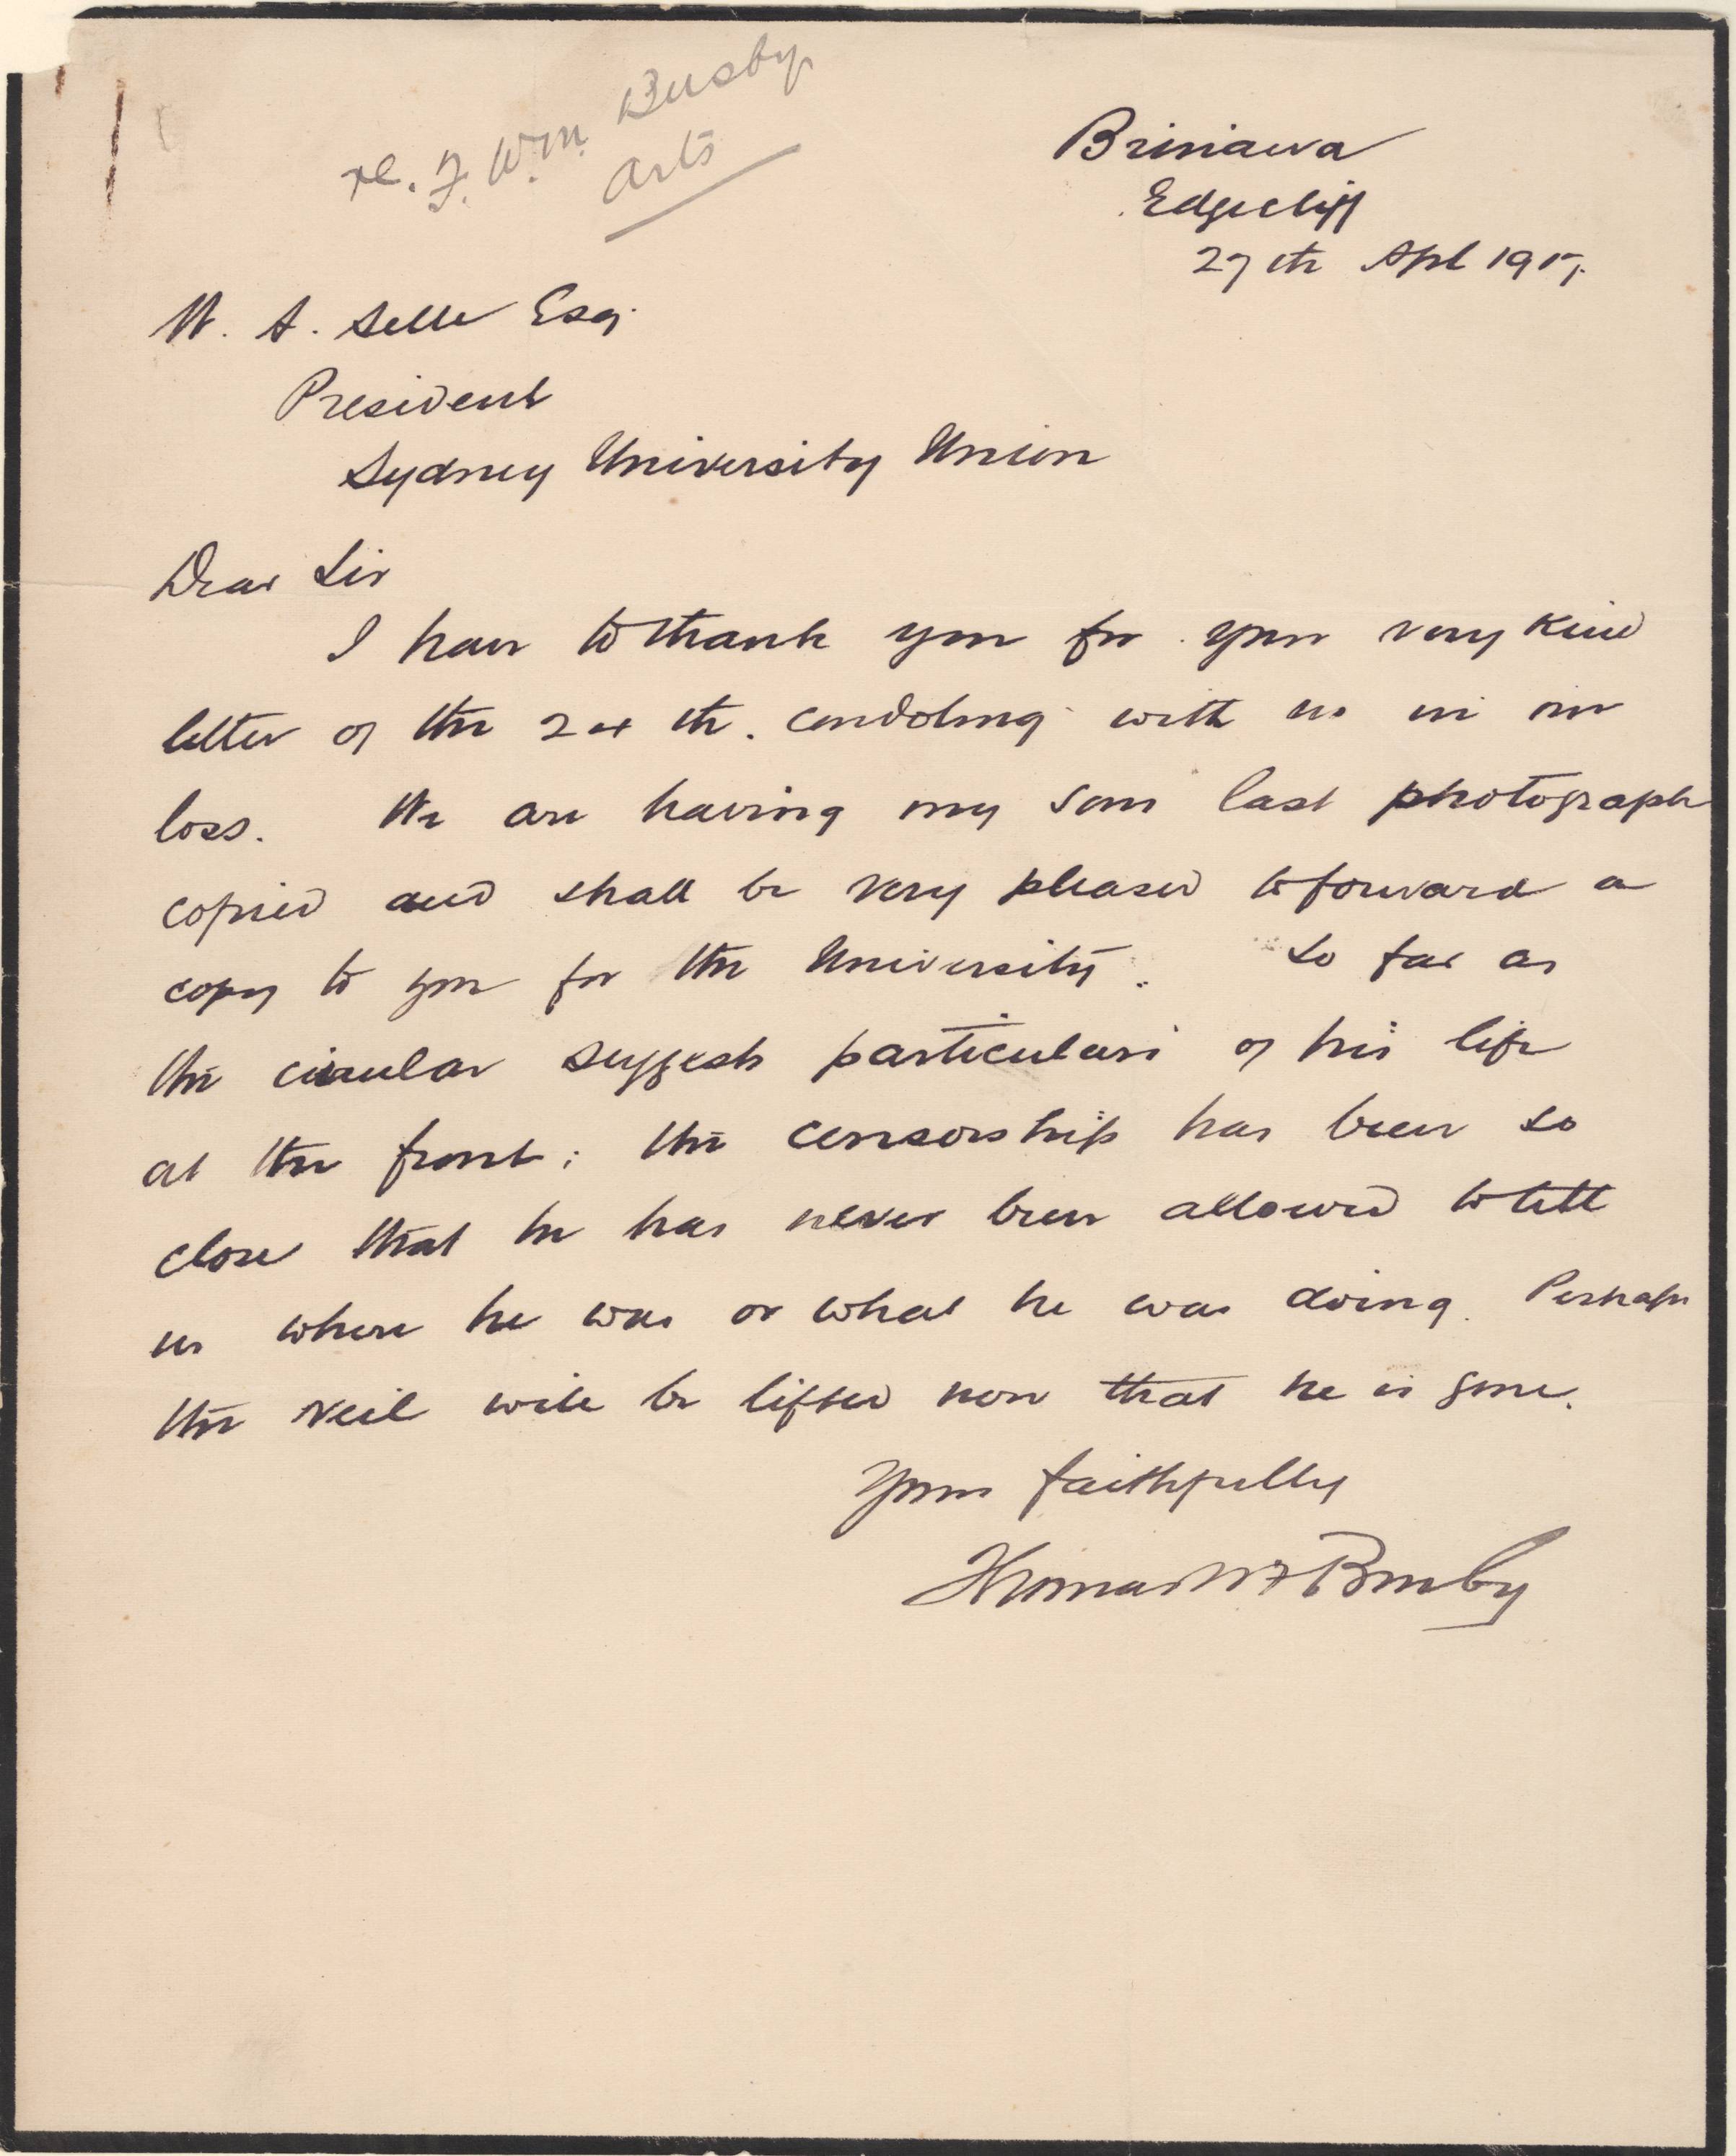 re. F. Wm. Busby
Arts
Edgecliff
27th Apl 1917.
W. A. Selle Esq.
President
Sydney University Union
Dear Sir
I have to thank you for your very kind
letter of the 24th. condoling with us in our
loss. We are having my sons last photograph
copied and shall be very pleased to forward a
copy to you for the University. So far as
the circular suggests particulars of his life
at the front; the censorship has been so
close that he has never been allowed to tell
us where he was or what he was doing. Perhaps
the veil will be lifted now that he is gone.
Yours faithfully
Thomas W F Busby